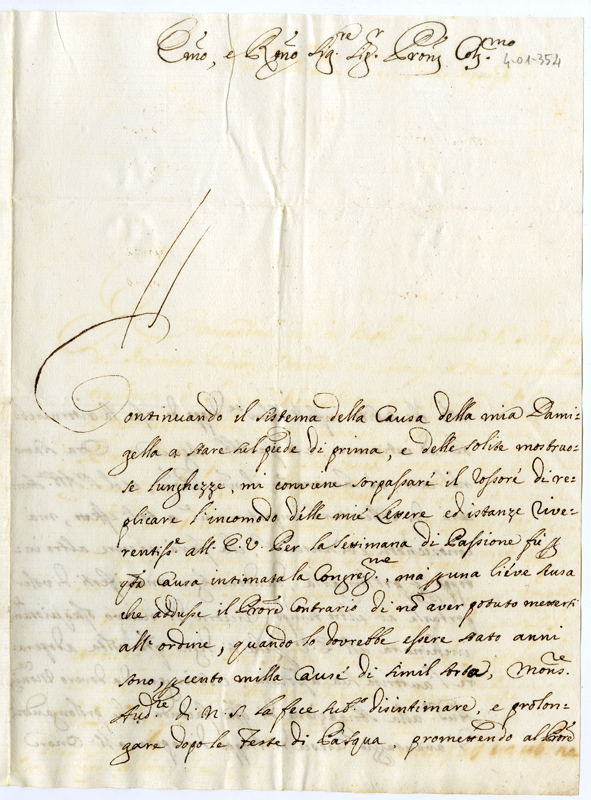 Emo, e Rmo Sig.re Sig.r Prone Col.mo
4-01-354
Continuando il sistema della Causa della mia Dami=
gella a stare sul piede di prima, e delle solite mostruo=
se lunghezze, mi conviene sorpassare il rossore di re=
plicare l'incomodo delle mie Lettere ed istanze rive=
rentiss.e all' E.V. Per la Settimana di Passione fù p
qta Causa intimata la Congreg.ne, mà p una liéve scusa
che addusse il Prore Contrario di nò aver potuto mettersi
all' ordine, quando lo dovrebbe essere stato anni
sono, p cento milla Cause di simil , Mons.re
Aud.re di N. S. la fece sub.o disintimare, e prolon=
gare dopo le Feste di Pasqua, promettendo al Prore